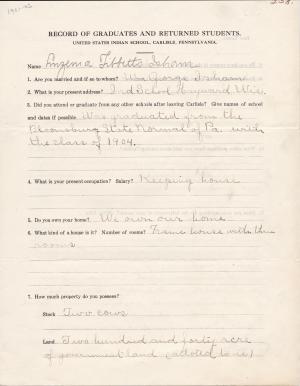 RECORD OF GRADUATES AND RETURNED STUDENTS.
UNITED STATES INDIAN SCHOOL, CARLISLE, PENNSYLVANIA.
Name Tibbitts Isham
1. Are you married and if so to whom? George Isham
2. What is your present address? Ind School Hayward Wis.
3. Did you attend or graduate from any other schools after leaving Carlisle? Give names of school
and dates if possible Was graduated from the
Bloomsburg State Normal of Pa. with
the class of 1904.
4. What is your present occupation? Salary? Keeping house
5. Do you own your home? We own our home
6. What kind of a house is it? Number of rooms? Frame house with three
rooms
7. How much property do you possess?
Stock Two cows
Land Two hundred and forty acre
of government land (alloted to us)